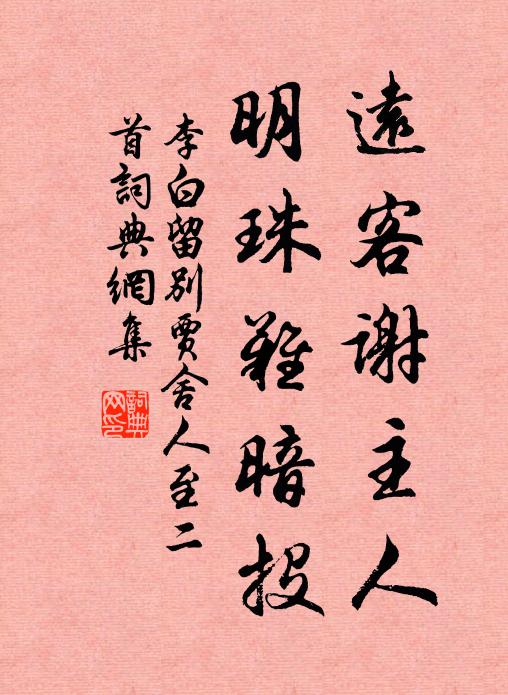 遠客謝主人
明珠難暗投
李白留別賈舍人至二
首詞典網集
詞典
网印